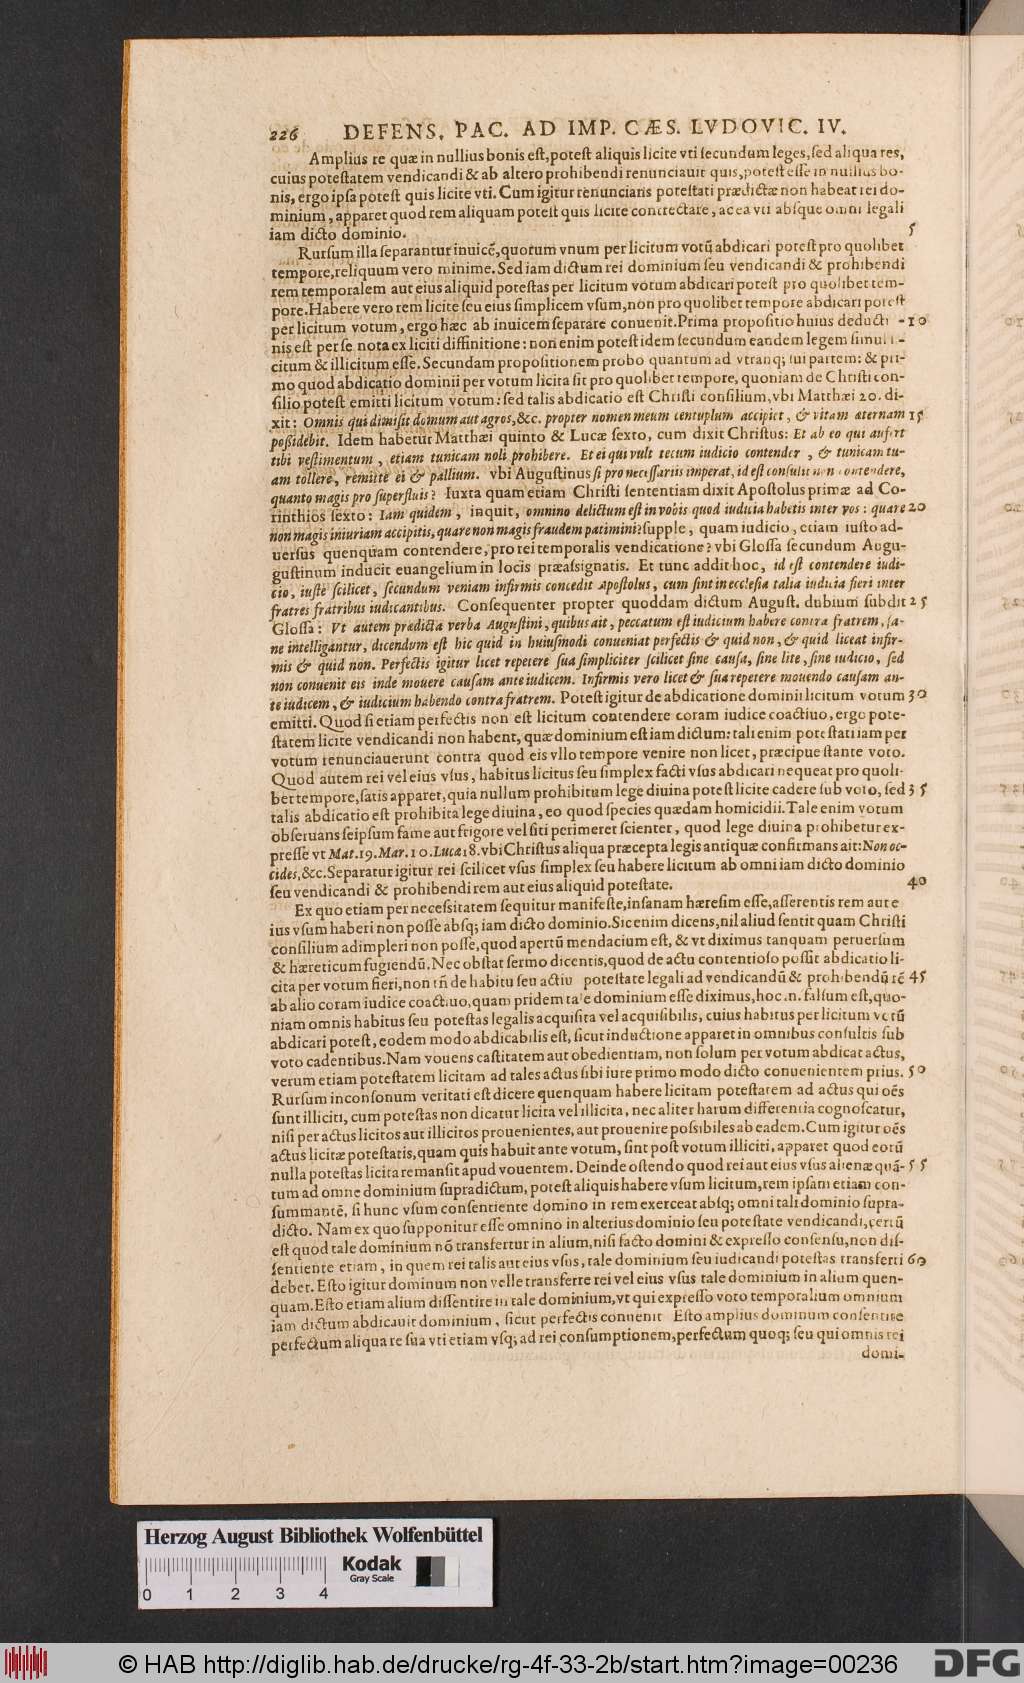 226 DEFENS. PAC. AD IMP. CÆS. LVDOVIC. IV.
Amplius re quæ in nullius bonis est, potest aliquis licite vti secundum leges, sed aliqua res,
cuius potestatem vendicandi & ab altero prohibendi renunciauit quis, potest esse in nullius bo-
nis, ergo ipsa potest quis licite vti. Cum igitur renuncians potestati prædictæ non habeat rei do-
minium, apparet quod rem aliquam potest quis licite contrectare, ac ea vti absque omni legali
iam dicto dominio. 5
Rursum illa separantur inuicē, quorum vnum per licitum votū abdicari potest pro quolibet
tempore, reliquum vero minime. Sed iam dictum rei dominium seu vendicandi & prohibendi
rem temporalem aut eius aliquid potestas per licitum votum abdicari potest pro quolibet tem-
pore. Habere vero rem licite seu eius simplicem vsum, non pro quolibet tempore abdicari potest
per licitum votum, ergo hæc ab inuicem separare conuenit. Prima propositio huius deducti - 10
nis est per se nota ex liciti diffinitione: non enim potest idem secundum eandem legem simul li-
citum & illicitum esse. Secundam propositionem probo quantum ad vtranq; sui partem: & pri-
mo quod abdicatio dominii per votum licita sit pro quolibet tempore, quoniam de Christi con-
silio potest emitti licitum votum: sed talis abdicatio est Christi consilium, vbi Matthæi 20. di-
xit: Omnis qui dimisit domum aut agros, &c. propter nomen meum centuplum accipiet, & vitam æternam 15
possidebit. Idem habetur Matthæi quinto & Lucæ sexto, cum dixit Christus: Et ab eo qui aufert
tibi vestimentum, etiam tunicam noli prohibere. Et ei qui vult tecum iudicio contendere, & tunicam tu-
am tollere, remitte ei & pallium. vbi Augustinus si pro necessariis imperat, id est consulit non contendere,
quanto magis pro superfluis? Iuxta quam etiam Christi sententiam dixit Apostolus primæ ad Co-
rinthios sexto: Iam quidem, inquit, omnino delictum est in vobis quod iudicia habetis inter vos: quare 20
non magis iniuriam accipitis, quare non magis fraudem patimini? supple, quam iudicio, etiam iusto ad-
uersus quenquam contendere, pro rei temporalis vendicatione? vbi Glossa secundum Augu-
gustinum inducit euangelium in locis præassignatis. Et tunc addit hoc, id est contendere iudi-
cio, iuste scilicet, secundum veniam infirmis concedit Apostolus, cum sint in ecclesia talia iudicia fieri inter
fratres fratribus iudicantibus. Consequenter propter quoddam dictum August. dubium subdit 25
Glossa: Vt autem prædicta verba Augustini, quibus ait, peccatum est iudicium habere contra fratrem, sa-
ne intelligantur, dicendum est hic quid in huiusmodi conueniat perfectis & quid non, & quid liceat infir-
mis & quid non. Perfectis igitur licet repetere sua simpliciter scilicet sine causa, sine lite, sine iudicio, sed
non conuenit eis inde mouere causam ante iudicem. Infirmis vero licet & sua repetere mouendo causam an-
te iudicem, & iudicium habendo contra fratrem. Potest igitur de abdicatione dominii licitum votum 30
emitti. Quod si etiam perfectis non est licitum contendere coram iudice coactiuo, ergo pote-
statem licite vendicandi non habent, quæ dominium est iam dictum: tali enim potestati iam per
votum renunciauerunt contra quod eis vllo tempore venire non licet, præcipue stante voto.
Quod autem rei vel eius vsus, habitus licitus seu simplex facti vsus abdicari nequeat pro quoli-
bet tempore, satis apparet, quia nullum prohibitum lege diuina potest licite cadere sub voto, sed 35
talis abdicatio est prohibita lege diuina, eo quod species quædam homicidii. Tale enim votum
obseruans seipsum fame aut frigore vel siti perimeret scienter, quod lege diuina prohibetur ex-
presse vt Mat. 19. Mar. 10. Lucæ 18. vbi Christus aliqua præcepta legis antiquæ confirmans ait: Non oc-
cides, &c. Separatur igitur rei scilicet vsus simplex seu habere licitum ab omni iam dicto dominio
seu vendicandi & prohibendi rem aut eius aliquid potestate. 40
Ex quo etiam per necessitatem sequitur manifeste, insanam hæresim esse, asserentis rem aut e
ius vsum haberi non posse absq; iam dicto dominio. Sic enim dicens, nil aliud sentit quam Christi
consilium adimpleri non posse, quod apertū mendacium est, & vt diximus tanquam peruersum
& hæreticum fugiendū. Nec obstat sermo dicentis, quod de actu contentioso possit abdicatio li-
cita per votum fieri, non tñ de habitu seu actiu potestate legali ad vendicandū & prohibendū rē 45
ab alio coram iudice coactiuo, quam pridem tale dominium esse diximus, hoc .n. falsum est, quo-
niam omnis habitus seu potestas legalis acquisita vel acquisibilis, cuius habitus per licitum votū
abdicari potest, eodem modo abdicabilis est, sicut inductione apparet in omnibus consultis sub
voto cadentibus. Nam vouens castitatem aut obedientiam, non solum per votum abdicat actus,
verum etiam potestatem licitam ad tales actus sibi iure primo modo dicto conuenientem prius. 50
Rursum inconsonum veritati est dicere quenquam habere licitam potestatem ad actus qui oēs
sunt illiciti, cum potestas non dicatur licita vel illicita, nec aliter harum differentia cognoscatur,
nisi per actus licitos aut illicitos prouenientes, aut prouenire possibiles ab eadem. Cum igitur oēs
actus licitæ potestatis, quam quis habuit ante votum, sint post votum illiciti, apparet quod eorū
nulla potestas licita remansit apud vouentem. Deinde ostendo quod rei aut eius vsus alienæ quā- 55
tum ad omne dominium supradictum, potest aliquis habere vsum licitum, rem ipsam etiam con-
summantē, si hunc vsum consentiente domino in rem exerceat absq; omni tali dominio supra-
dicto. Nam ex quo supponitur esse omnino in alterius dominio seu potestate vendicandi, certū
est quod tale dominium nō transfertur in alium, nisi facto domini & expresso consensu, non dis-
sentiente etiam, in quem rei talis aut eius vsus, tale dominium seu iudicandi potestas transferri 60
debet. Esto igitur dominum non velle transferre rei vel eius vsus tale dominium in alium quen-
quam. Esto etiam alium dissentire in tale dominium, vt qui expresso voto temporalium omnium
iam dictum abdicauit dominium, sicut perfectis conuenit Esto amplius dominum consentire
perfectum aliqua re sua vti etiam vsq; ad rei consumptionem, perfectum quoq; seu qui omnis rei
domi-
Herzog August Bibliothek Wolfenbüttel
Kodak
Gray Scale
0 1 2 3 4
© HAB http://diglib.hab.de/drucke/rg-4f-33-2b/start.htm?image=00236
DFG